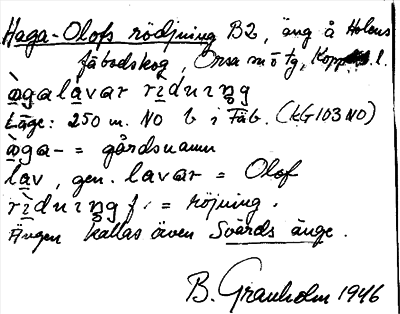 Haga-Olofs rödjning B2, äng å Holens
fäbodskog, Orsa sn o tg, Kopp. l.
àgalavar rìduıŋg
Läge: 250 m. NO b i Fäb. (KG 103 NO)
àga- = gårdsnamn
lav, gen. lavar = Olof
rìduıŋg f. = röjning.
Ängen kallas även Svärds änge.
B. Granholm 1946